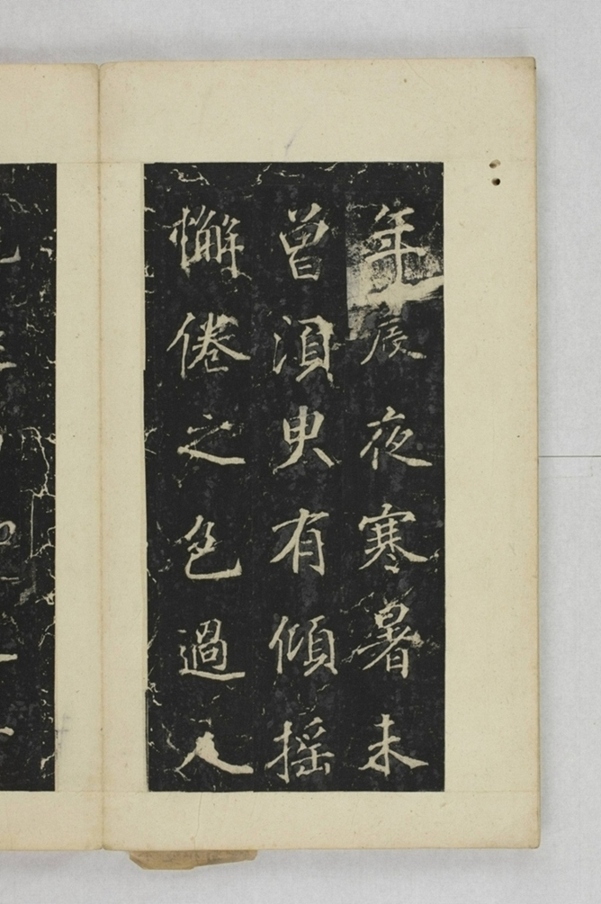 年晨夜寒暑未
曾須臾有傾搖
懈倦之色過人